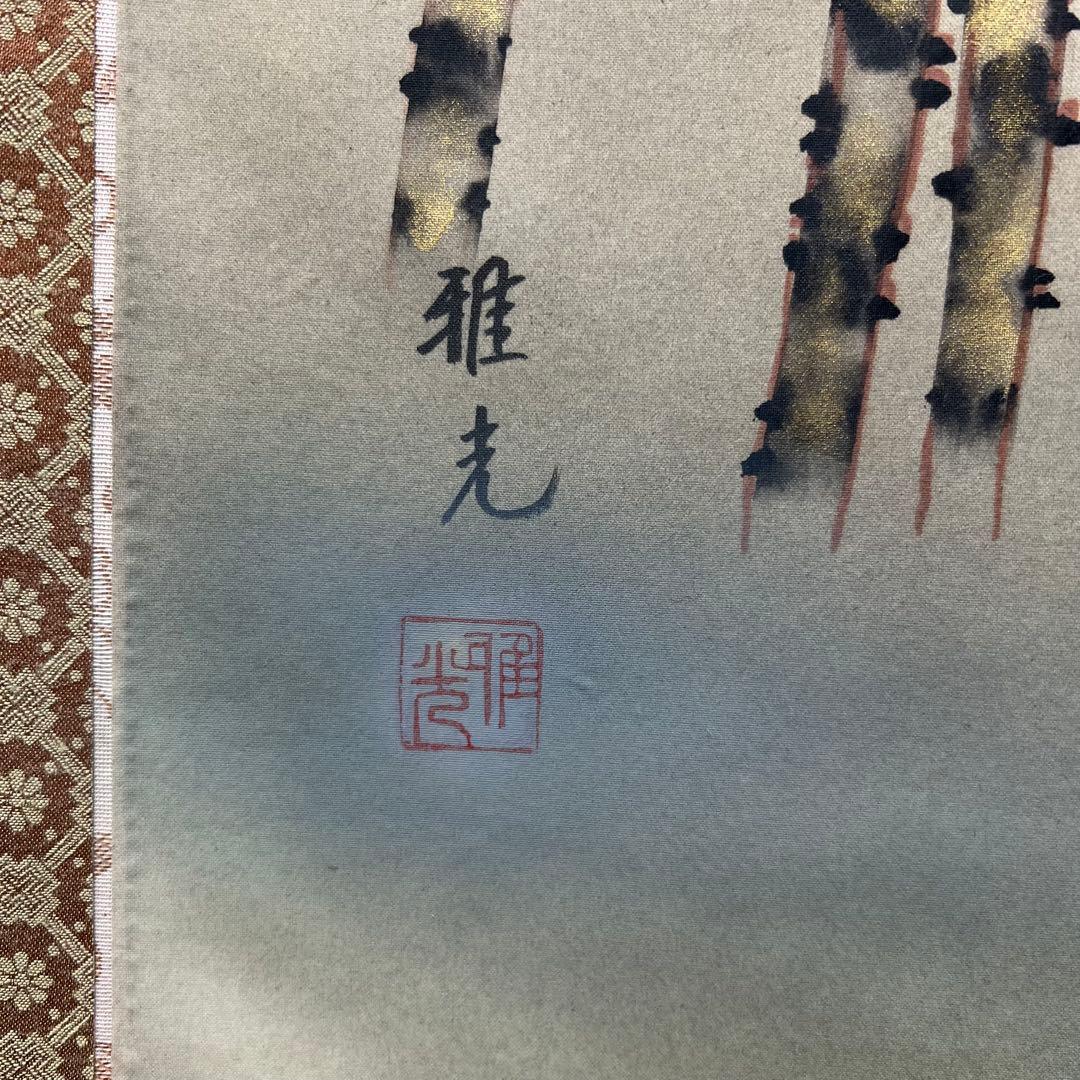 雅光
雅光